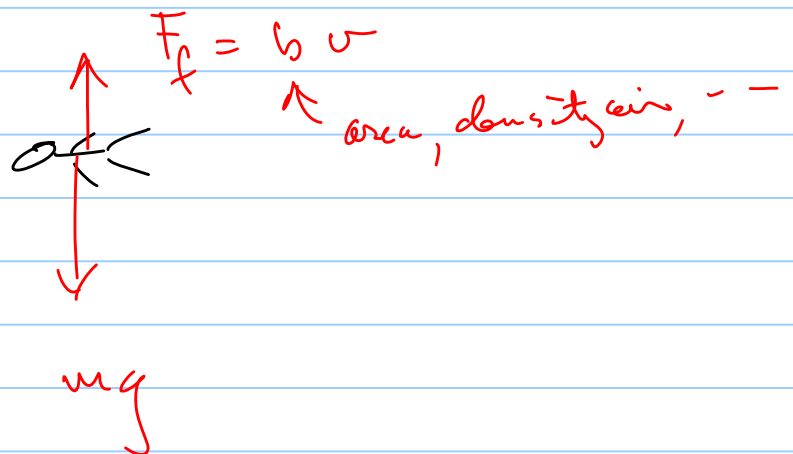 F_f = b v
area, density air, - -
mg